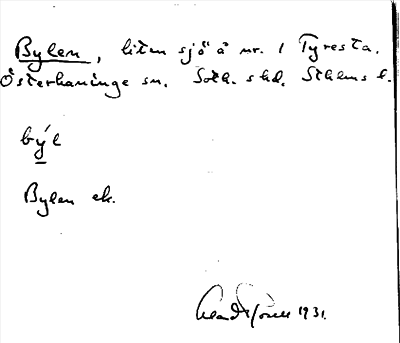 Bylen, liten sjö å nr. 1 Tyresta.
Österhaninge sn. Soth. shd. Sthlms l.
bý̱l
Bylen ek.
1931.